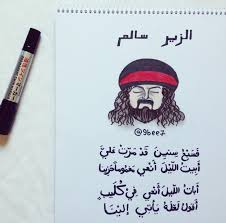 الزير سالم
@9bee7
سنين قد مرت علي
أبيت الليل أنعي
أبات الليل أنعي في كليب
أقول لعله يأتي إلينا